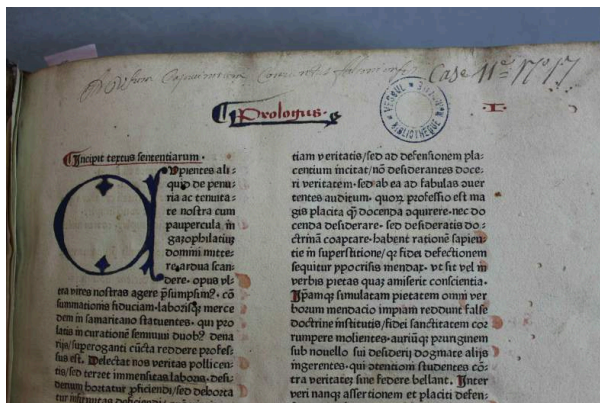 Case 11e no 17
Prologus.
I.
VESOUL
BIBLIOTHEQUE
Incipit textus sententiarum.
CUpientes ali-
quid de penu-
ria ac tenuita-
te nostra cum
paupercula in
gazophilatiū
domini mitte-
re: ardua scan
dere. opus vl-
tra vires nostras agere p̄sumpsim9. cō
summationis fiduciam. laborisq; merce
dem in samaritano statuentes. qui pro
latis in curationē semiuiui duob9 dena
rijs/superoganti cūcta reddere profes-
sus est. Delectat nos veritas pollicen-
tis/sed terret immensitas laboris. desi-
derium hortatur pficiendi/sed dehorta
tur infirmitas deficiendi
tiam veritatis/sed ad defensionem pla-
centium incitat/nō desiderantes doce-
ri veritatem. sed ab ea ad fabulas auer
tentes auditum. quorꝝ professio est ma
gis placita q̄ docenda aquirere. nec do
cenda desiderare. sed desideratis do-
ctrinā coaptare. habent rationē sapien-
tie in superstitione/q2 fidei defectionem
sequitur ypocrisis mendax. vt sit vel in
verbis pietas quā amiserit conscientia.
Ipamq; simulatam pietatem omni ver
borum mendacio impiam reddunt false
doctrine institutis/fidei sanctitatem cor
rumpere molientes. auriūq; pruriginem
sub nouello sui desiderij dogmate alijs
ingerentes. qui ptentioni studentes cō-
tra veritatē sine federe bellant. Inter
veri nanq; assertionem et placiti defen-